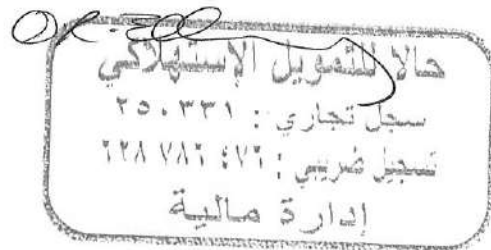 حالا للتمويل الإستهلاكي
سجل تجاري : ٢٥٠٣٣١
تسجيل ضريبي : ٤٧٢ ٧٨٢ ٢٢٨
إدارة مالية